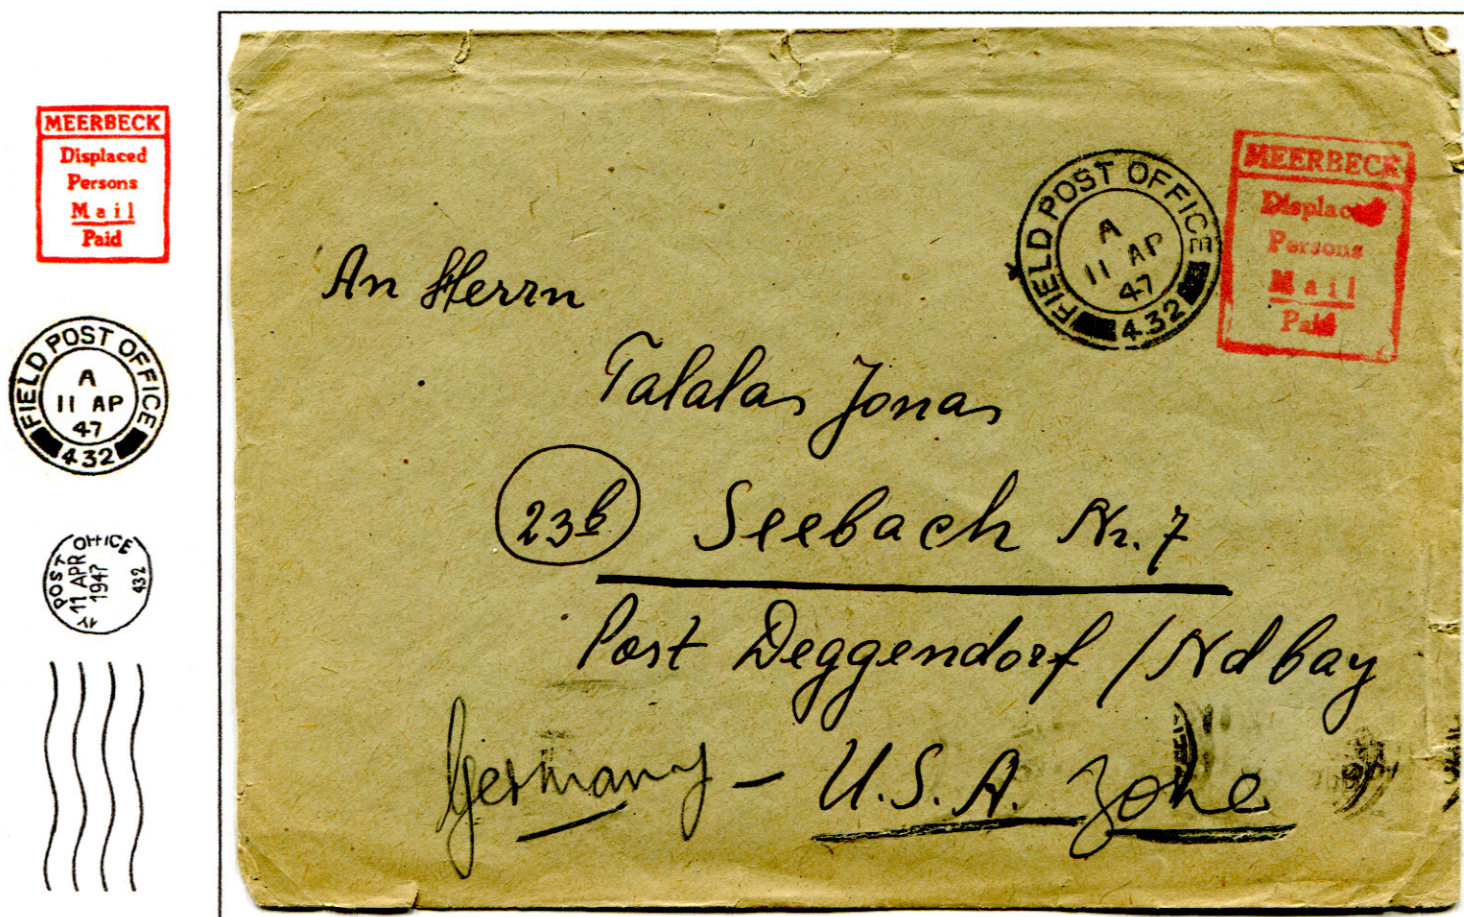 MEERBECK
Displaced
Persons
Mail
Paid
FIELD POST OFFICE
A
11 AP
47
432
POST OFFICE
11 APR
1947
432
FIELD POST OFFICE
A
11 AP
47
432
MEERBECK
Displaced
Persons
Mail
Paid
An Herrn
Talalas Jonas
23b Seebach Nr. 7
Post Deggendorf / Ndbay
Germany - U.S.A. Zone